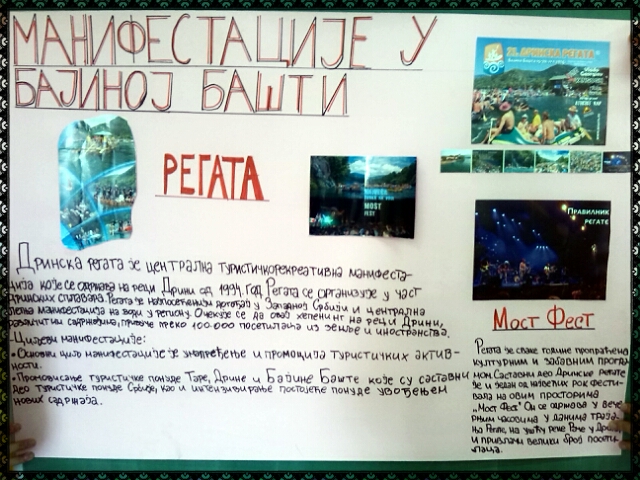 МАНИФЕСТАЦИЈЕ У
БАЈИНОЈ БАШТИ
РЕГАТА
ДРИНСКА РЕГАТА
MOST
FEST
Правилник
регате
Дринска регата је централна туристичкорекреативна манифеста-
ција које се одржава на реци Дрини од 1994. год. Регата се организује у част
дринских сплавара. Регата је најпосећенији догађај у Западној Србији и централна
летња манифестација на води у региону. Очекује се да овај хепенинг на реци Дрини,
садржајима, привуче преко 100.000 посетилаца из земље и иностранства.
Циљеви манифестације:
• Основни циљ манифестације је унапређење и промоција туристичких актив-
ности.
• Промовисање туристичке понуде Таре, Дрине и Бајине Баште које су саставни
део туристичке понуде Србије, као и интензивирање постојеће понуде увођењем
нових садржаја.
Мост Фест
Регата је сваке године пропраћена
културним и забавним програ-
мом. Саставни део Дринске регате
је и један од највећих рок фести-
вала на овим просторима
„Мост Фест“ Он се одржава у вече-
рњим часовима у данима траја-
ња Регате, на ушћу реке Раче у Дрину
и привлачи велики број посети-
лаца.